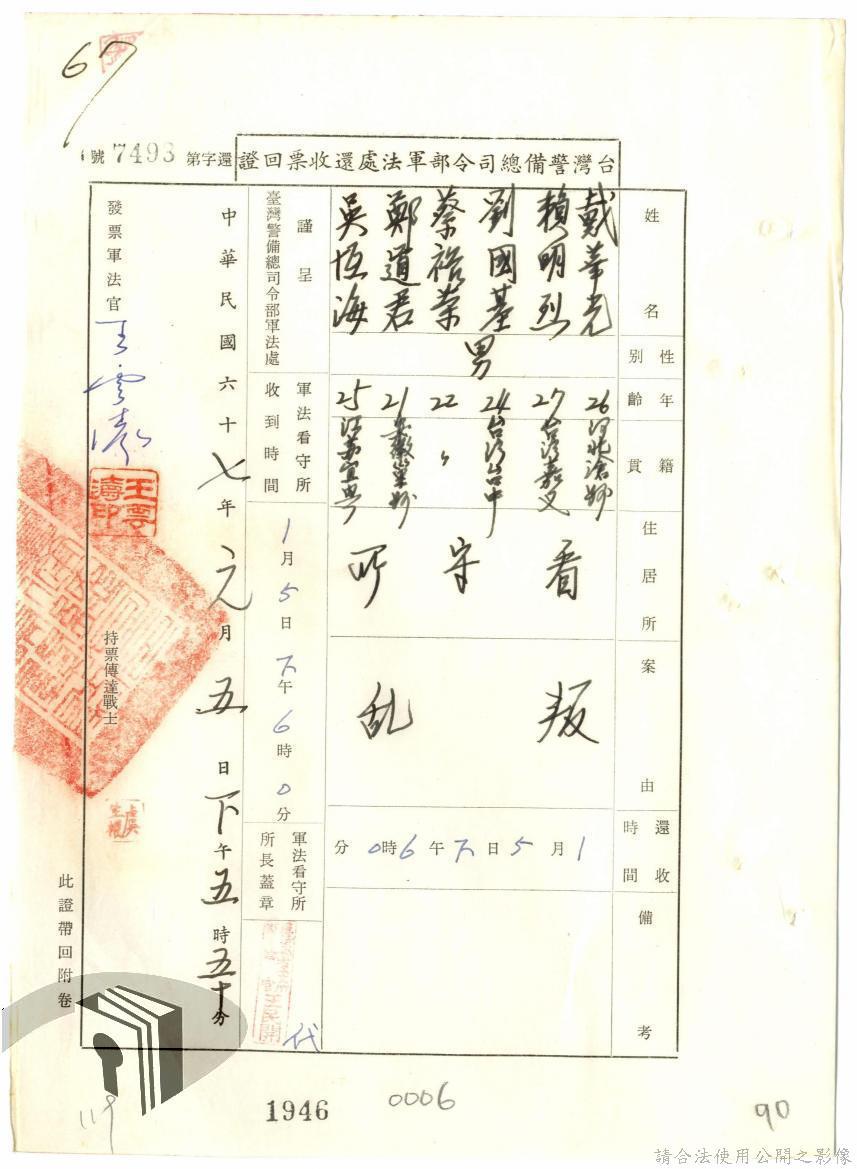 67
台灣警備總司令部軍法處還收票回證
還字第 7493 號
姓名
戴華光
賴明烈
劉國基
蔡裕榮
鄭道君
吳恆海
性別
男
年齡
26
27
24
22
21
25
籍貫
河北滄縣
台灣嘉义
台灣台中
〃
安徽巢縣
江苏宜興
住居所
看守所
案由
叛乱
還收時間
1月5日下午6時0分
備考
謹呈
臺灣警備總司令部軍法處
軍法看守所收到時間
1月5日下午6時0分
軍法看守所所長蓋章
代
中華民國六十七年元月五日下午五時五十分
發票軍法官
王雲濤
王雲濤印
持票傳達戰士
此證帶回附卷
119
1946
0006
90
請合法使用公開之影像